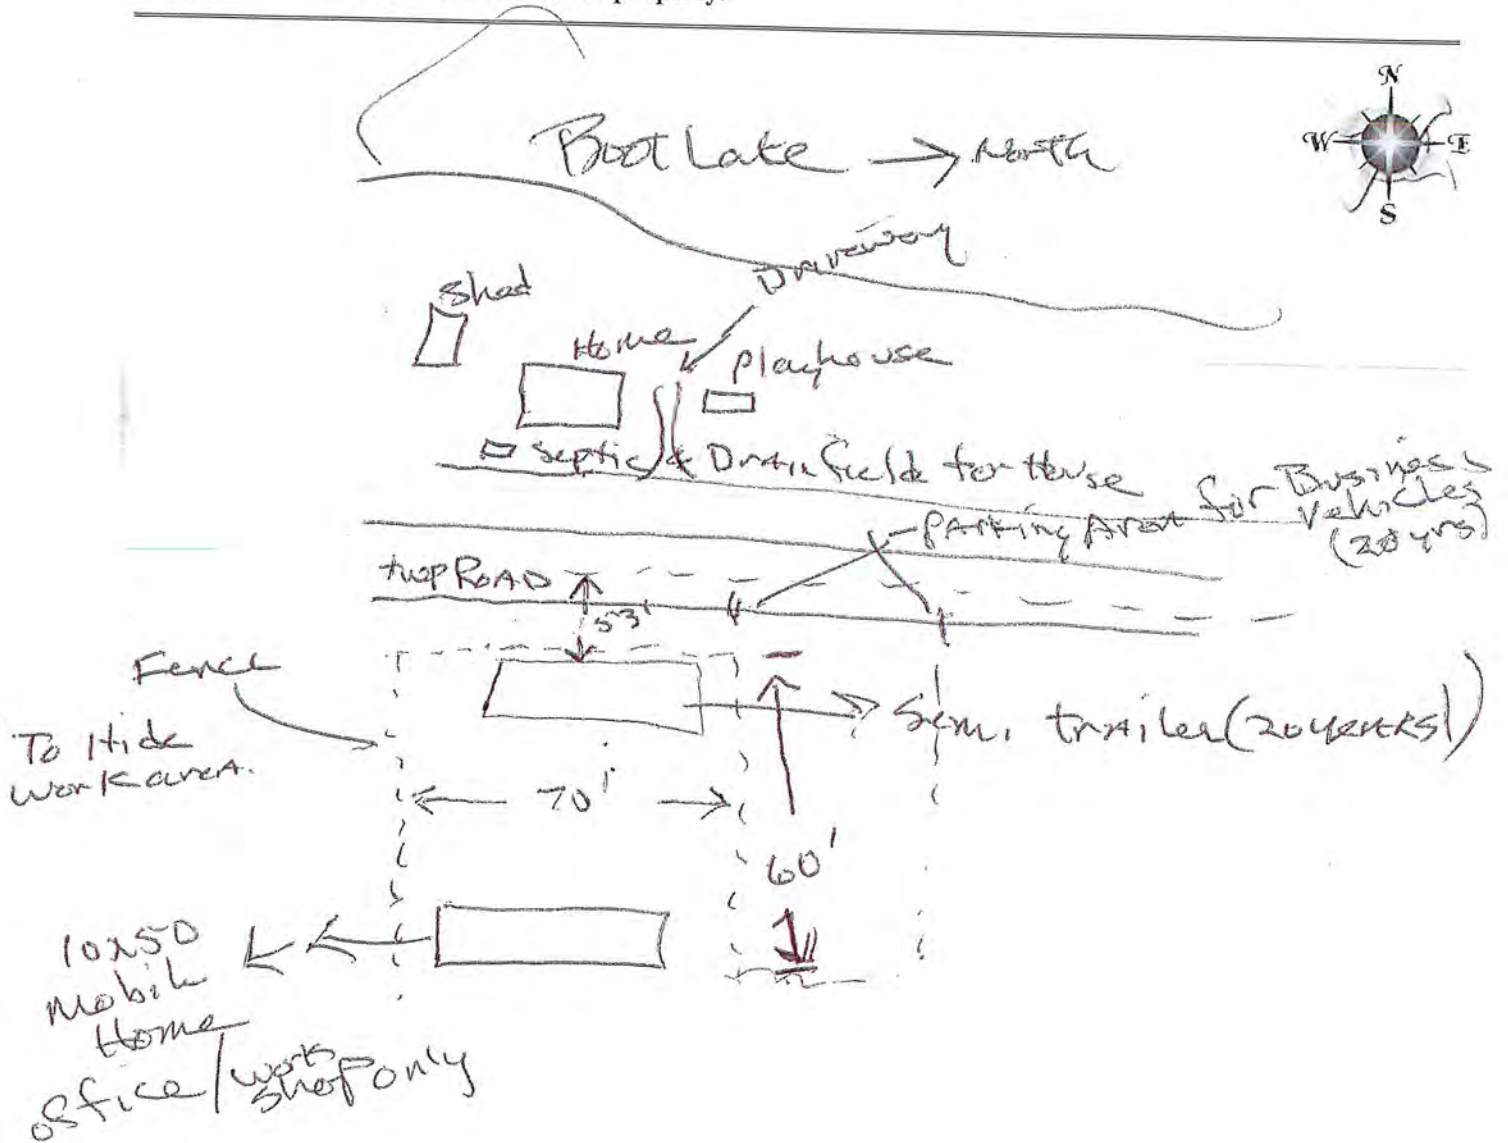 N
W E
S
Boot Lake → North
Driveway
Shed
Home
Playhouse
Septic & Drain field for House
Parking Area for Business
Vehicles
(20 yrs)
twp ROAD
53'
Fence
To Hide
work area.
Semi trailer (20 YEARS)
70'
60'
10x50
Mobile
Home
office/work
shop only